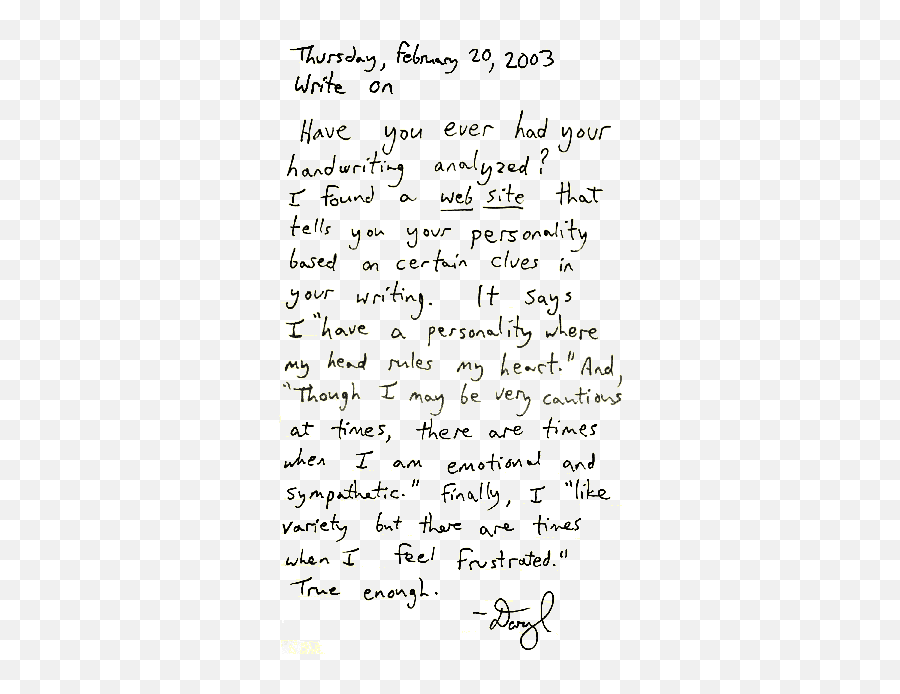 Thursday, February 20, 2003
Write on
Have you ever had your
handwriting analyzed?
I found a web site that
tells you your personality
based on certain clues in
your writing. It says
I "have a personality where
my head rules my heart." And,
"Though I may be very cautious
at times, there are times
when I am emotional and
sympathetic." Finally, I "like
variety but there are times
when I feel frustrated."
True enough.
-Daryl